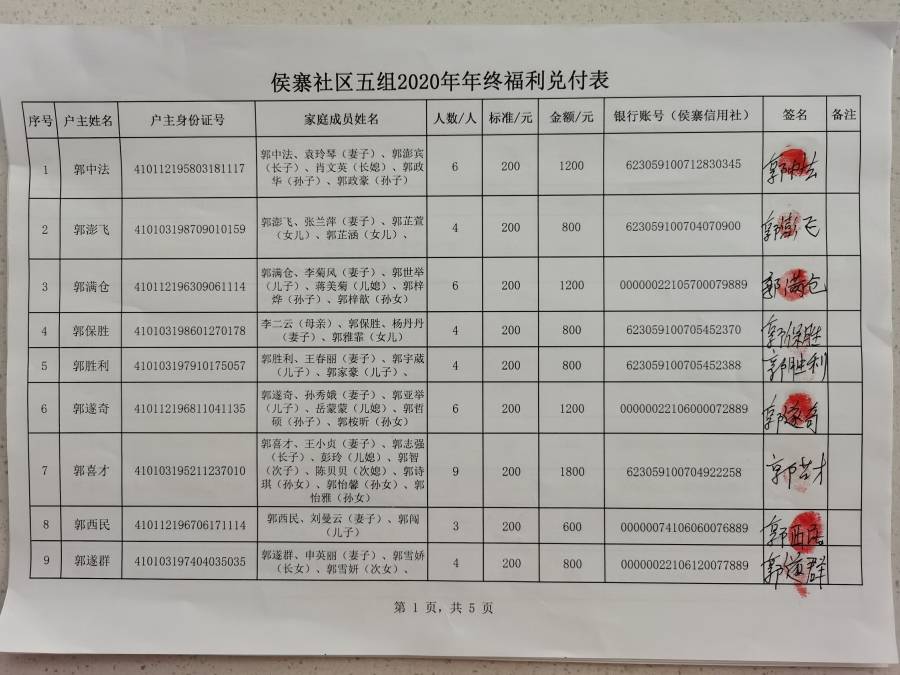 侯寨社区五组2020年年终福利兑付表
序号 户主姓名 户主身份证号 家庭成员姓名 人数/人 标准/元 金额/元 银行账号（侯寨信用社） 签名 备注
1 郭中法 410112195803181117 郭中法、袁玲琴（妻子）、郭澎宾（长子）、肖文英（长媳）、郭政华（孙子）、郭政豪（孙子） 6 200 1200 623059100712830345 郭中法
2 郭澎飞 410103198709010159 郭澎飞、张兰萍（妻子）、郭芷萱（女儿）、郭芷涵（女儿）、 4 200 800 623059100704070900 郭澎飞
3 郭满仓 410112196309061114 郭满仓、李菊风（妻子）、郭世举（儿子）、蒋美菊（儿媳）、郭梓烨（孙子）、郭梓歆（孙女） 6 200 1200 00000022105700079889 郭满仓
4 郭保胜 410103198601270178 李二云（母亲）、郭保胜、杨丹丹（妻子）、郭雅霏（女儿） 4 200 800 623059100705452370 郭保胜
5 郭胜利 410103197910175057 郭胜利、王春丽（妻子）、郭宇葳（儿子）、郭家豪（儿子）、 4 200 800 623059100705452388 郭胜利
6 郭遂奇 410112196811041135 郭遂奇、孙秀娥（妻子）、郭亚举（儿子）、岳蒙蒙（儿媳）、郭哲硕（孙子）、郭桉昕（孙女） 6 200 1200 00000022106000072889 郭遂奇
7 郭喜才 410103195211237010 郭喜才、王小贞（妻子）、郭志强（长子）、彭玲（儿媳）、郭智（次子）、陈贝贝（次媳）、郭诗琪（孙女）、郭怡馨（孙女）、郭怡雅（孙女） 9 200 1800 623059100704922258 郭喜才
8 郭西民 410112196706171114 郭西民、刘曼云（妻子）、郭闯（儿子） 3 200 600 00000074106060076889 郭西民
9 郭遂群 410103197404035035 郭遂群、申英丽（妻子）、郭雪娇（长女）、郭雪妍（次女）、 4 200 800 00000022106120077889 郭遂群
第 1 页，共 5 页